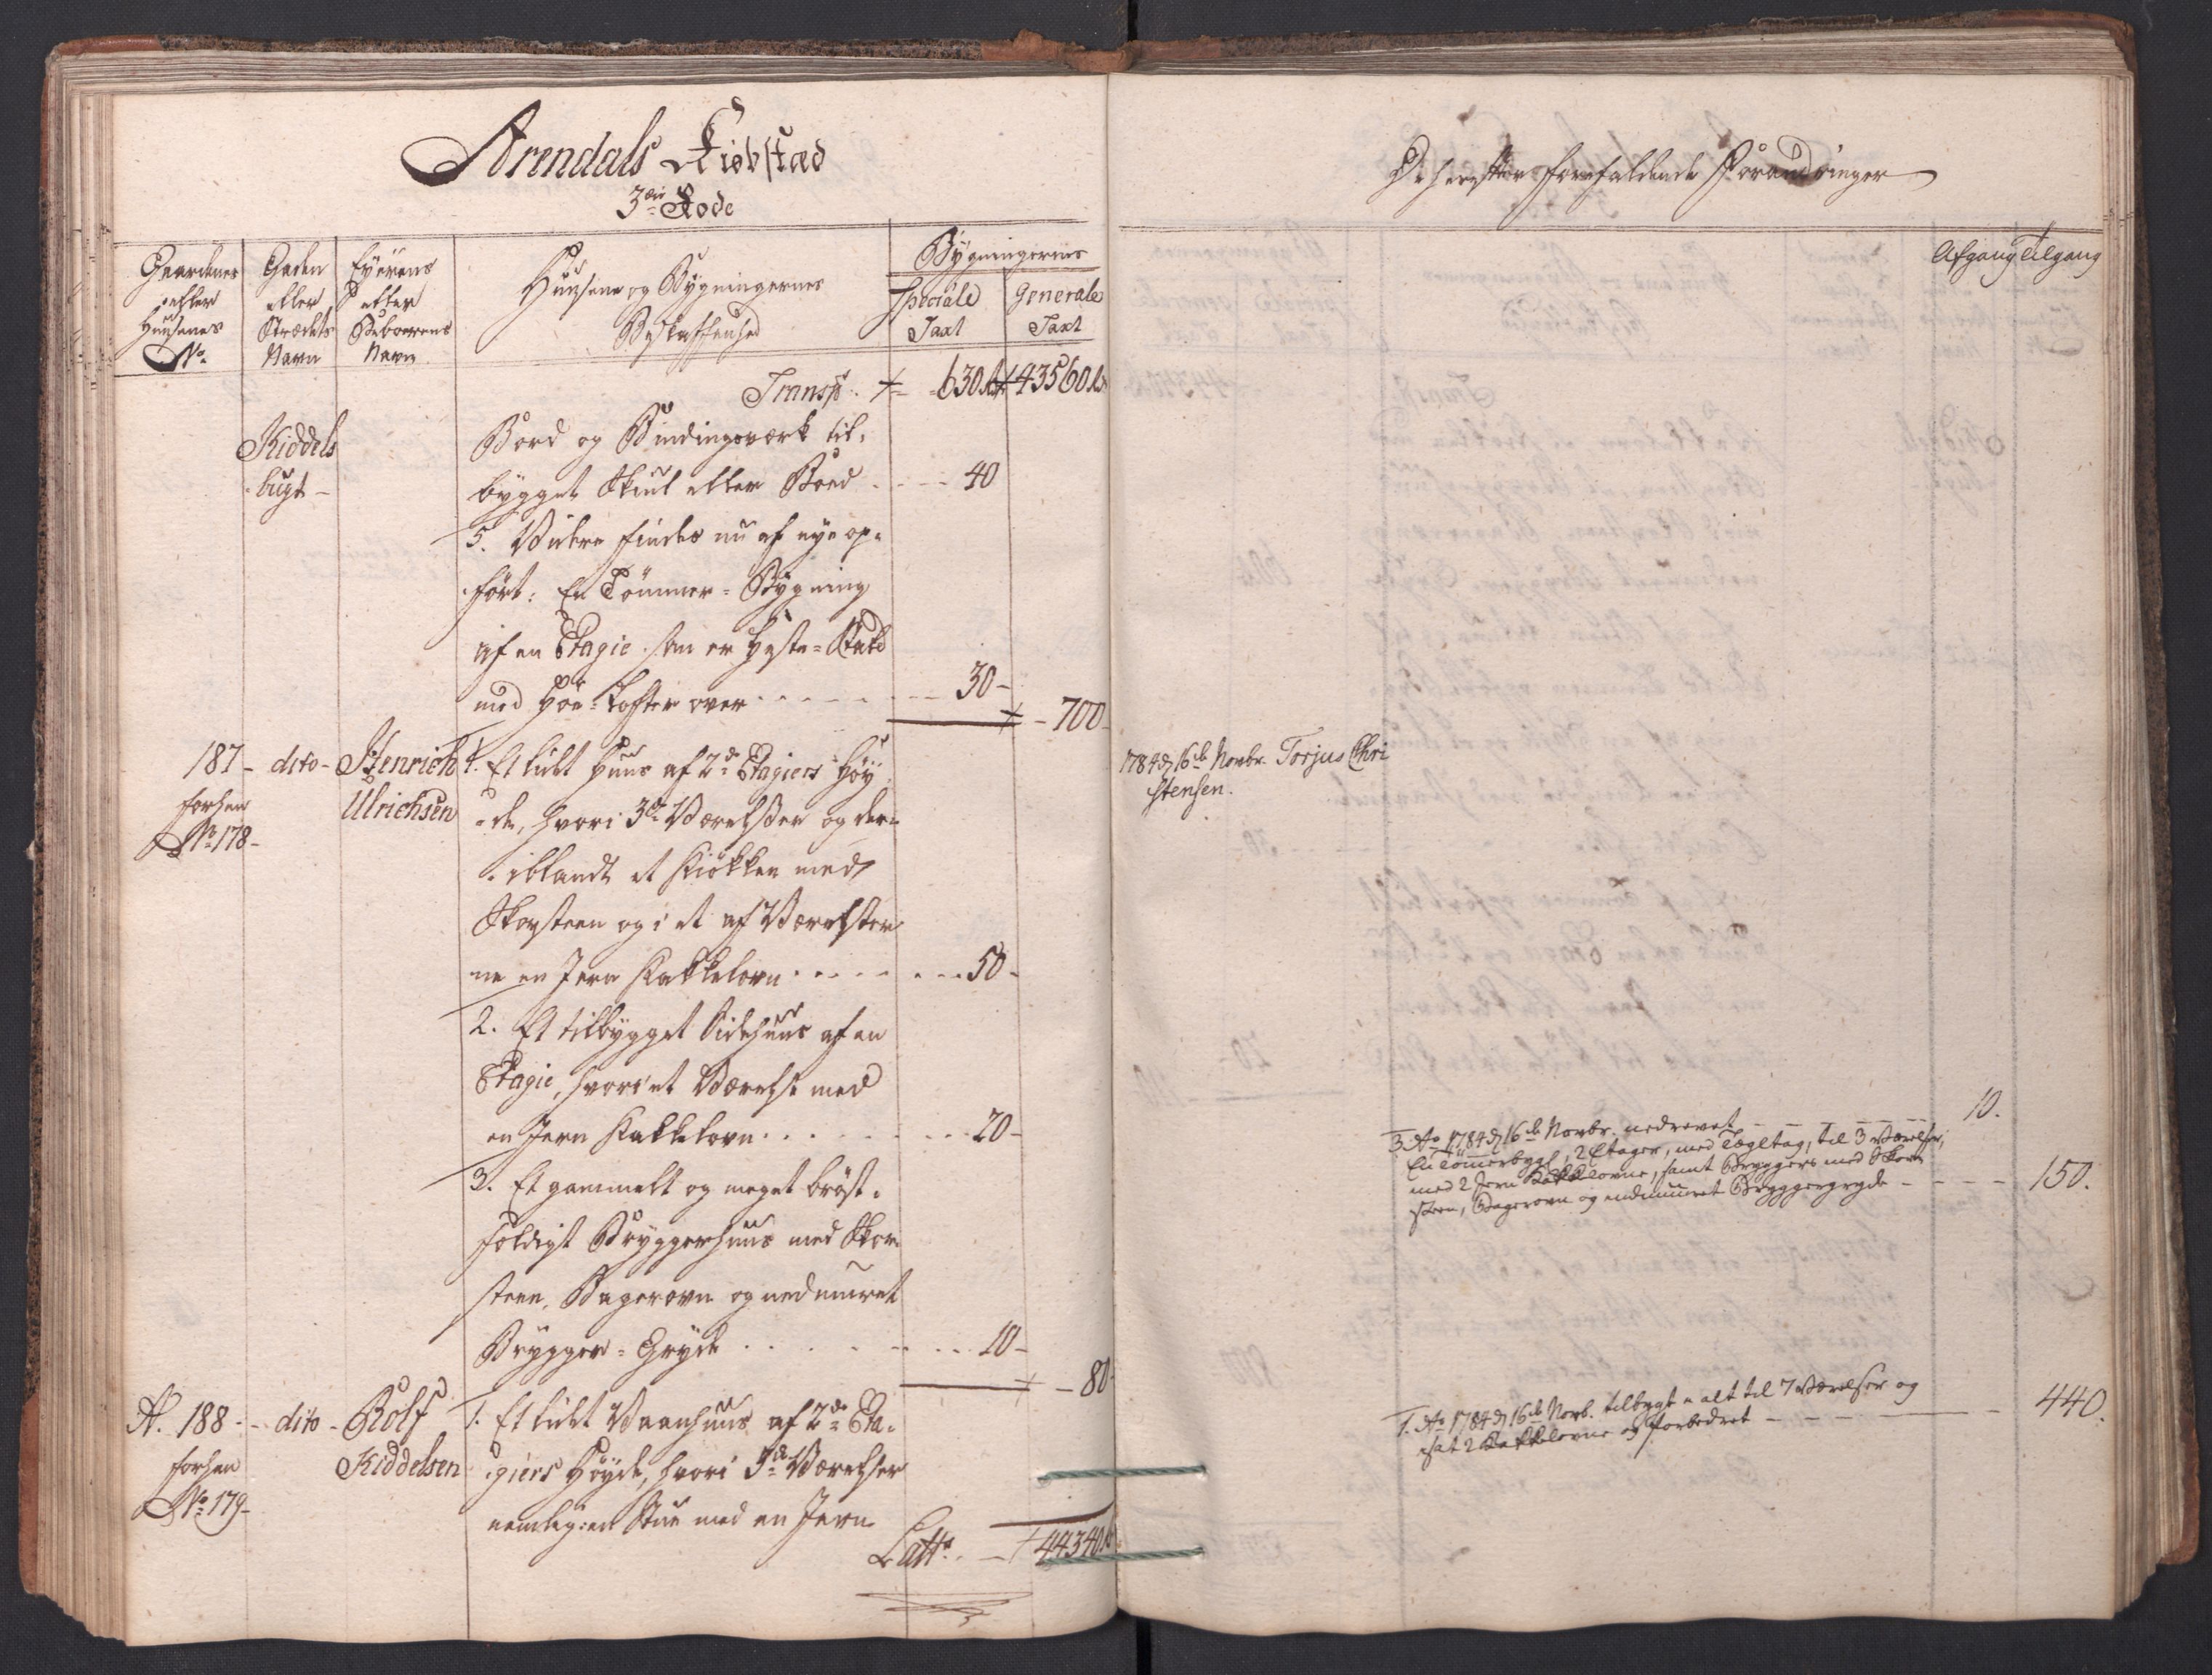 Arendals Kiøbstæd
3die Rode
Gaardenes
eller
Huusenes
No.
Gaden
eller
Strædets
Navn
Eyerens
eller
Beboerens
Navn
Huusene og Bygningernes
Beskaffenhed
Bygningernes
Speciale
Taxt
Generale
Taxt
Transp. 630 43560
Kiddels
bugt -
Bord og Bindingsverk til-
bygget Skiul eller Boed - - - - 40
5. Videre findes nu af nye op-
ført: En Tømmer-Bygning
af en Etagie som er Heste-Stald
med Høe-Lofter over - - - - - 30-
700-
187- dito- Henrich
forhen
No 178-
Ulrichsen
1. Et lidet Huus af 2de Etagiers Høy-
de, hvori 3de Værelser og der-
iblandt et Kiøkken med
Skorsteen og i et af Værelser-
ne en Jern Kakkelovn - - - - - 50-
2. Et tilbygget Sidehuus af en
Etagie, hvori et Værelse med
en Jern Kakkelovn - - - - - 20-
3. Et gammelt og meget brøst-
fældigt Bryggerhuus med Skor-
steen, Bagerovn og nedmuret
Brygger-Gryde - - - - - 10-
80-
A. 188- - dito- Rolf
forhen
No 179-
Kiddelsen
1. Et lidet Vaanhuus af 2de Eta-
giers Høyde, hvori 5de Værelser
nemlig: en Stue med en Jern
Latt. - 44340
De herefter forefaldende Forandringer
Afgang Tilgang
1784 d 16de Novbr. Torjus Chri
stensen.
3. Ao 1784 d 16de Novbr. nedrevet - - - - - 10.
En Tømmerbygn, 2 Etager, med Tegltag, til 3 Værelser,
med 2 Jern Kakkelovne, samt Bryggers med Skor-
steen, Bagerovn og indmuuret Bryggergryde - - - - 150.
1. Ao 1784 d 16de Novb. tilbygt n alt til 7 Værelser og
sat 2 Kakkelovne og forbedret - - - - 440.